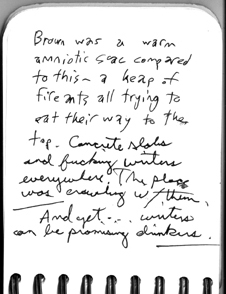 Brown was a warm
amniotic sac compared
to this – a heap of
fire ants all trying to
eat their way to the
top. Concrete slabs
and fucking writers
everywhere! The place
was crawling w/ them.
And yet... writers
can be promising drinkers.